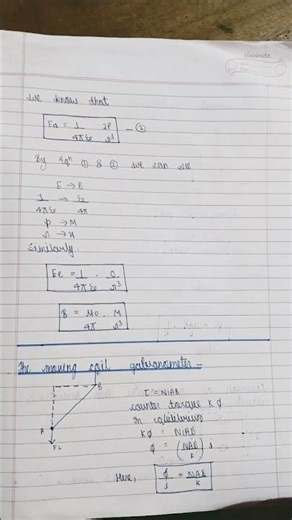 we know that
Ea = 1/4πε₀ 2P/r³ — ②
By Eqⁿ ① & ② we can see
E → B
1/4πε₀ →
P → M
Similarly
Ee = 1/4πε₀ · P/r³
B = μ₀/4π · M/r³
The moving coil galvanometer –
B
τ = NIAB
counter torque Kϕ
A
In equilibrium
Kϕ = NIAB
ϕ = (NAB/K) I
Here, ϕ/I = NAB/K